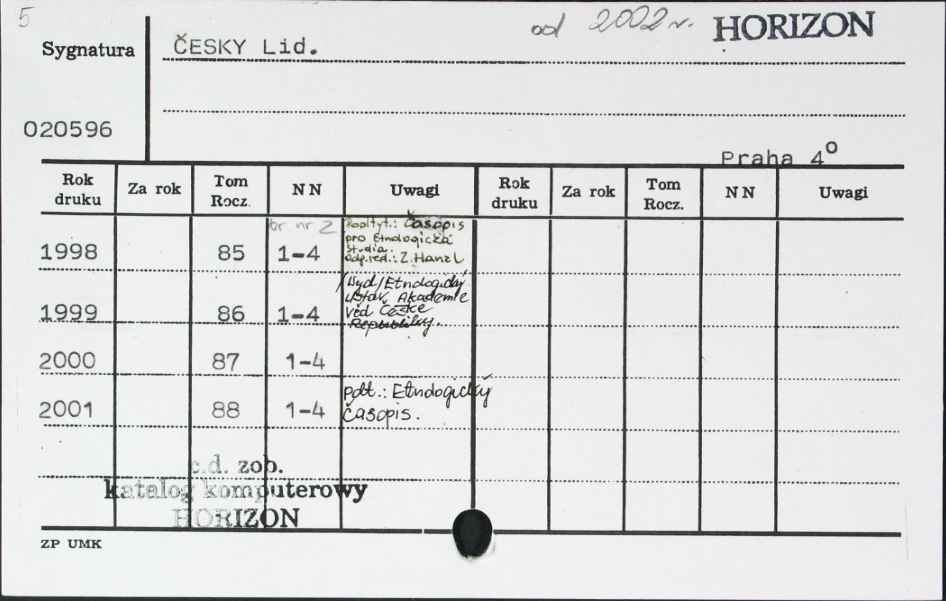 5
od 2002 r. HORIZON
Sygnatura
ČESKY Lid.
020596
Praha 4°
Rok druku Za rok Tom Rocz. NN Uwagi Rok druku Za rok Tom Rocz. NN Uwagi
br nr 2
1998 85 1-4
Podtyt.: Časopis
pro Etnologická
studia.
odp.red.: Z. Hanzl
1999 86 1-4
/Wyd/Etnologický
ústav Akademie
věd České
Republiky.
2000 87 1-4
2001 88 1-4
pdt.: Etnologický
Časopis.
c.d. zob.
katalog komputerowy
HORIZON
ZP UMK